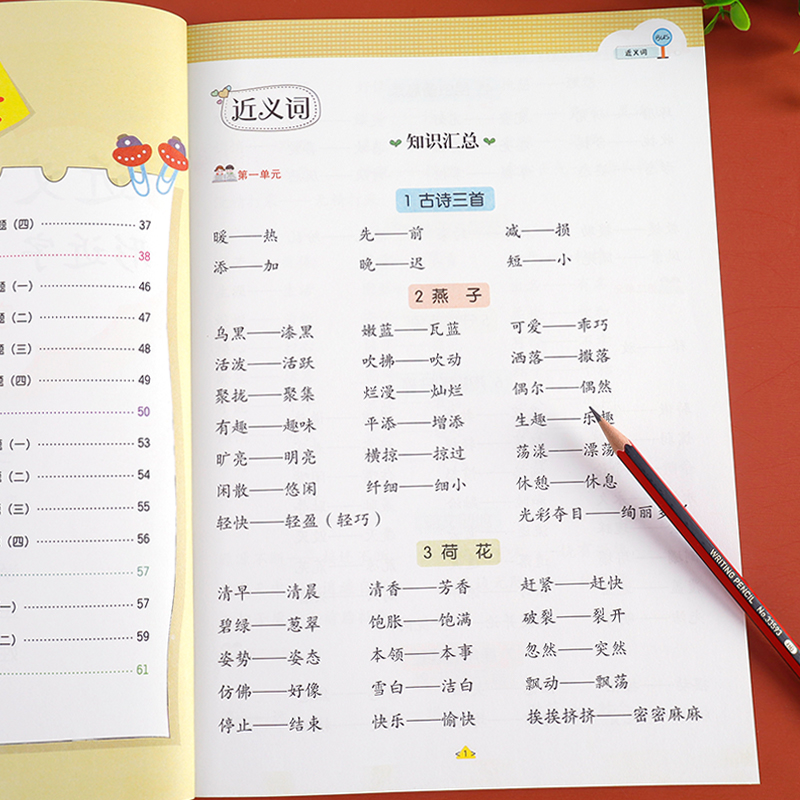 近义词
近义词
知识汇总
第一单元
1 古诗三首
暖——热 先——前 减——损
添——加 晚——迟 短——小
2 燕 子
乌黑——漆黑 嫩蓝——瓦蓝 可爱——乖巧
活泼——活跃 吹拂——吹动 洒落——撒落
聚拢——聚集 烂漫——灿烂 偶尔——偶然
有趣——趣味 平添——增添 生趣——乐趣
旷亮——明亮 横掠——掠过 荡漾——漂荡
闲散——悠闲 纤细——细小 休憩——休息
轻快——轻盈（轻巧） 光彩夺目——绚丽
3 荷 花
清早——清晨 清香——芳香 赶紧——赶快
碧绿——葱翠 饱胀——饱满 破裂——裂开
姿势——姿态 本领——本事 忽然——突然
仿佛——好像 雪白——洁白 飘动——飘荡
停止——结束 快乐——愉快 挨挨挤挤——密密麻麻
1
题（四） 37
38
题（一） 46
题（二） 47
题（三） 48
题（四） 49
50
题（一） 53
题（二） 54
题（三） 55
（四） 56
57
一） 57
二） 59
61
WRITING PENCIL No 33593